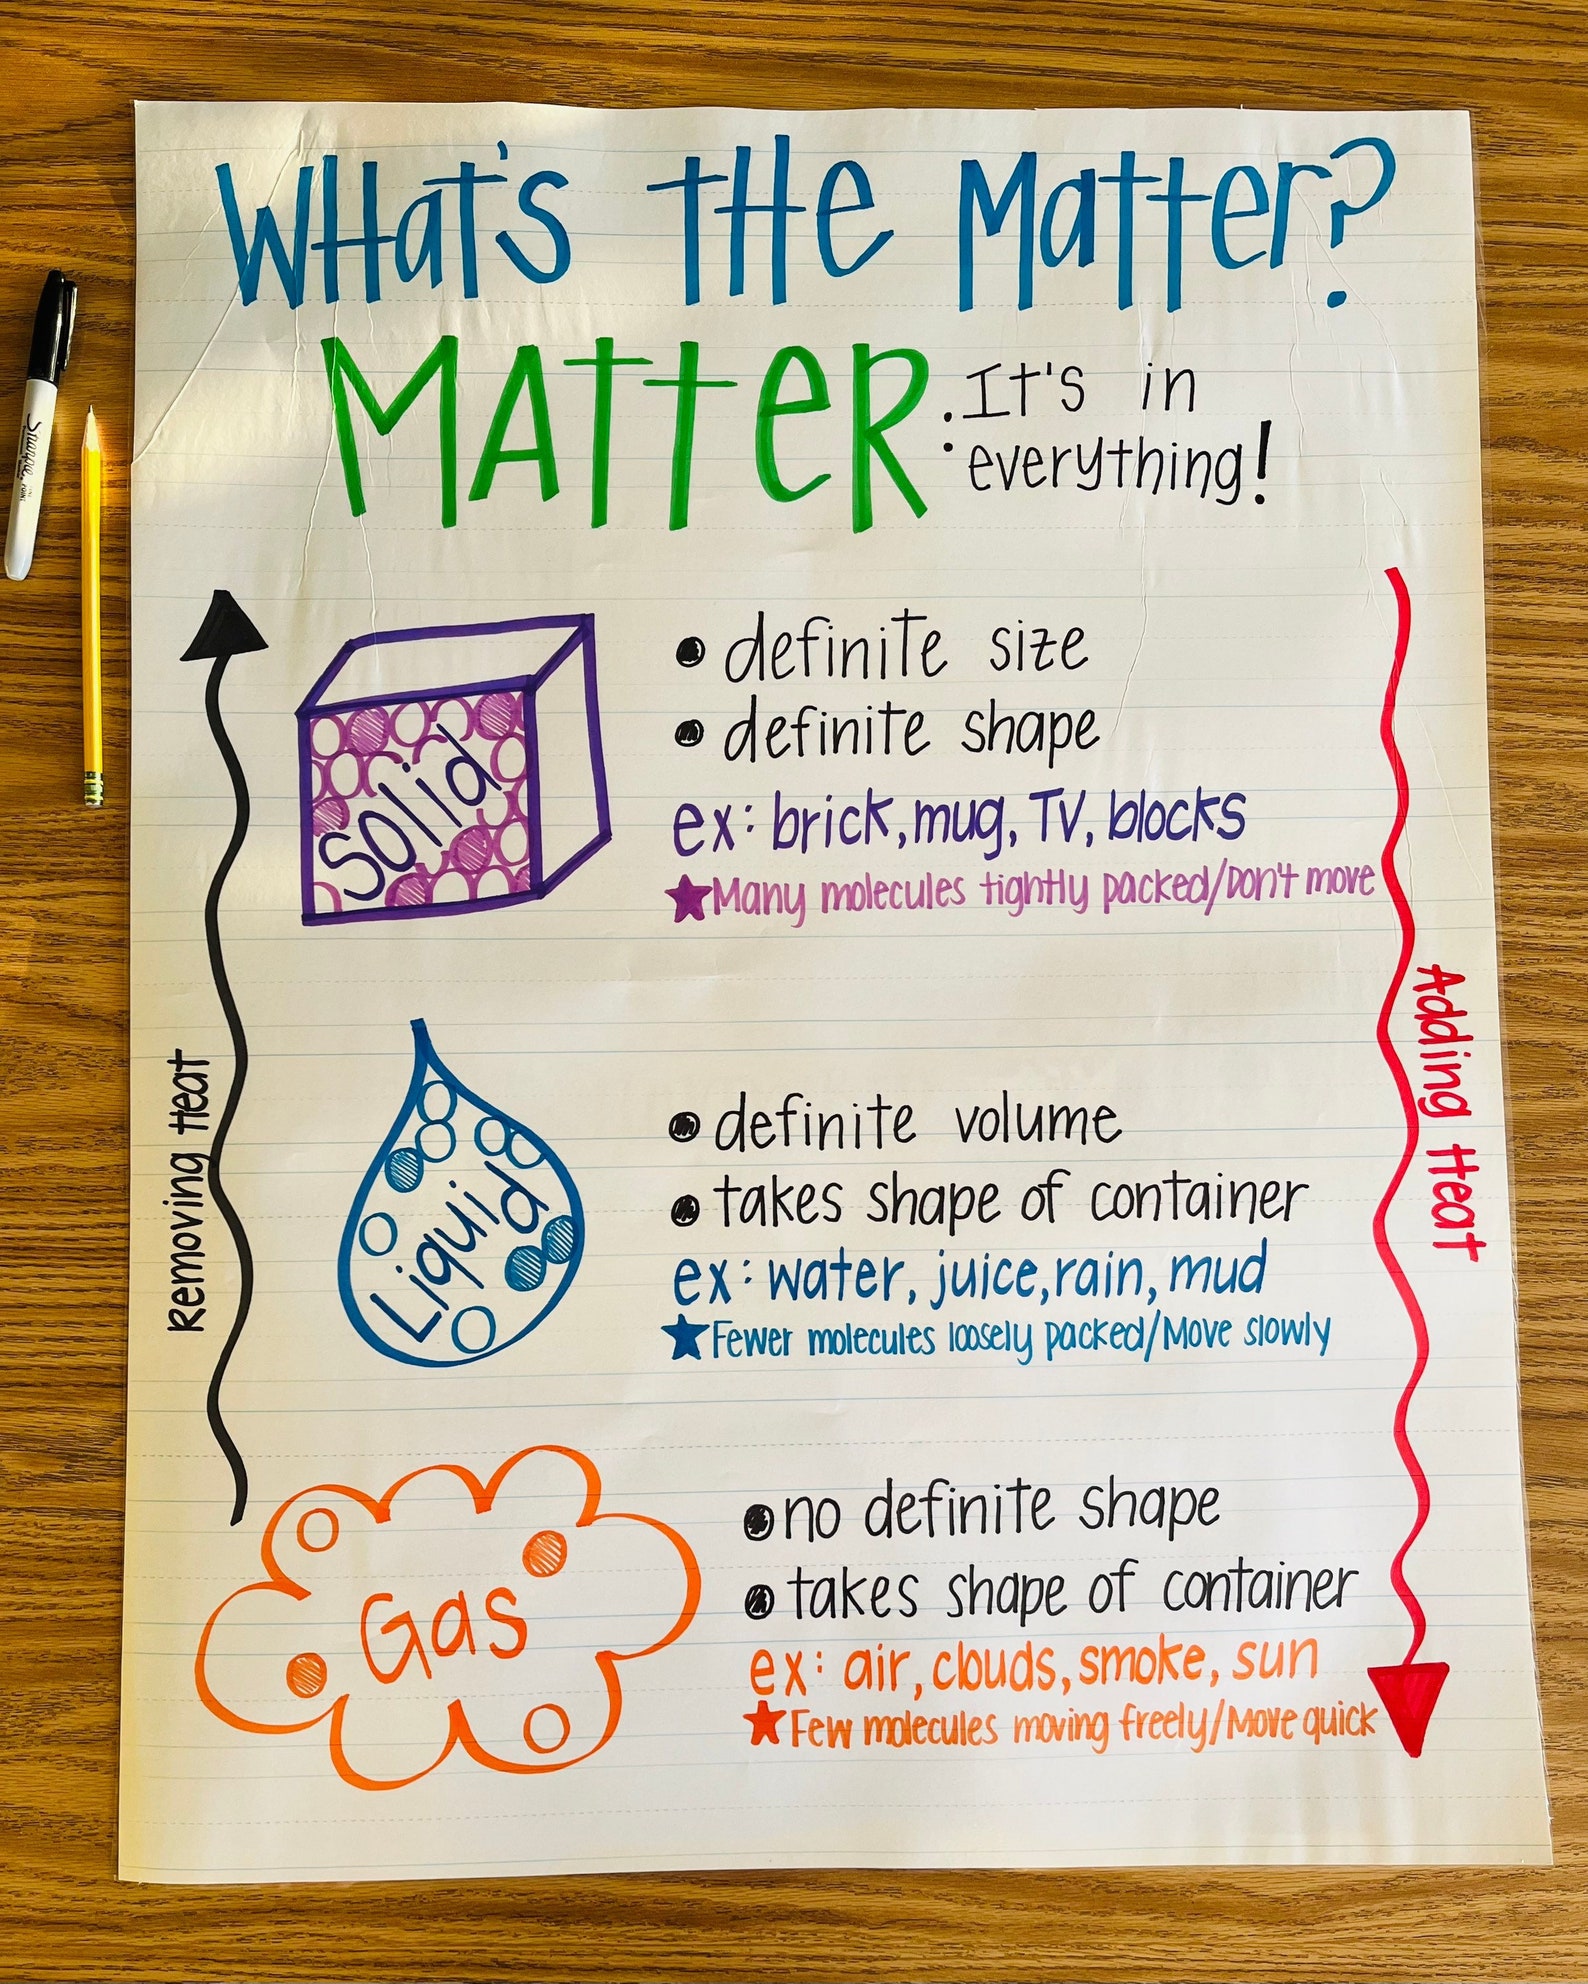 What's the Matter?
MATTER: It's in
everything!
Solid
• definite size
• definite shape
ex: brick, mug, TV, blocks
★ Many molecules tightly packed/Don't move
Removing Heat
Adding Heat
Liquid
• definite volume
• takes shape of container
ex: water, juice, rain, mud
★ Fewer molecules loosely packed/Move slowly
Gas
• no definite shape
• takes shape of container
ex: air, clouds, smoke, sun
★ Few molecules moving freely/Move quick
Sharpie